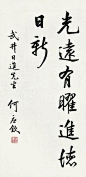 光遠有曜進德
日新
武井日進先生
何應欽